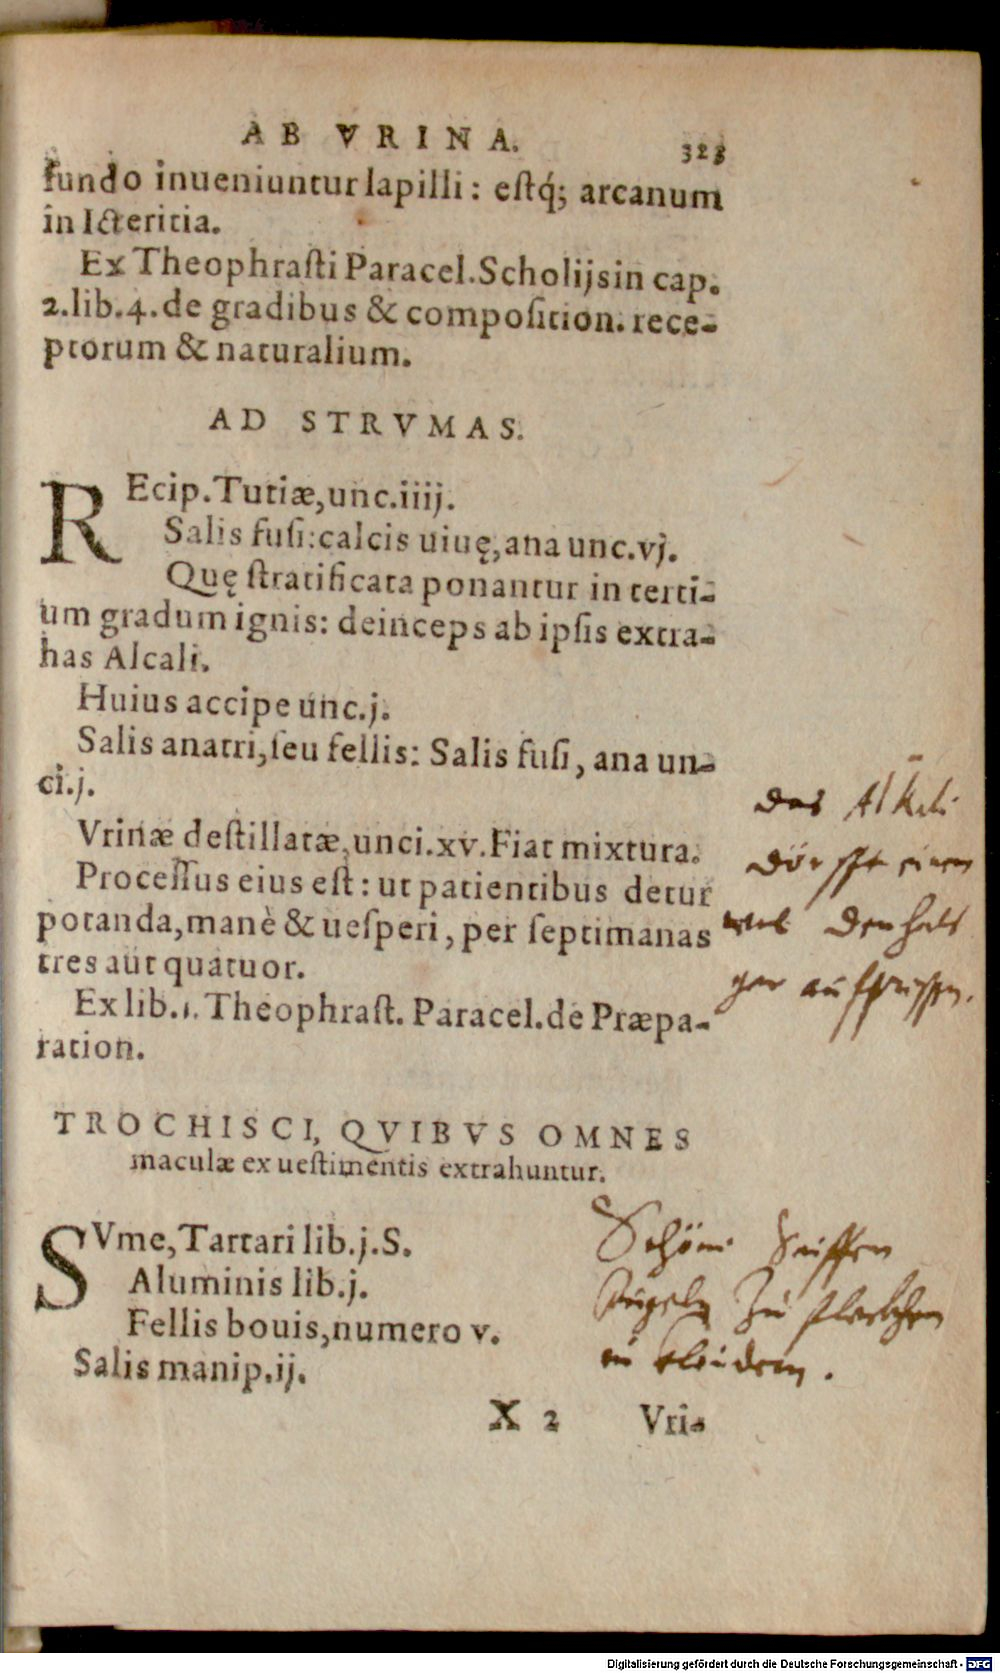 AB VRINA. 323
fundo inueniuntur lapilli: estq́; arcanum
in Icteritia.
Ex Theophrasti Paracel. Scholijs in cap.
2. lib. 4. de gradibus & composition. rece-
ptorum & naturalium.
AD STRVMAS.
REcip. Tutiæ, unc. iiij.
Salis fusi: calcis uiuę, ana unc. vj.
Quę stratificata ponantur in terti-
um gradum ignis: deinceps ab ipsis extra-
has Alcali.
Huius accipe unc. j.
Salis anatri, seu fellis: Salis fusi, ana un-
ci. j.
Vrinæ destillatæ, unci. xv. Fiat mixtura.
Processus eius est: ut patientibus detur
potanda, manè & uesperi, per septimanas
tres aut quatuor.
Ex lib. 1. Theophrast. Paracel. de Præpa-
ration.
das Alkali
dörffte einem
wol den hals
gar auffrissen.
TROCHISCI, QVIBVS OMNES
maculæ ex uestimentis extrahuntur.
SVme, Tartari lib. j. S.
Aluminis lib. j.
Fellis bouis, numero v.
Salis manip. ij.
Schöne Seiffen
Kugeln zu flecken
in kleidern.
X 2 Vri-
Digitalisierung gefördert durch die Deutsche Forschungsgemeinschaft - DFG